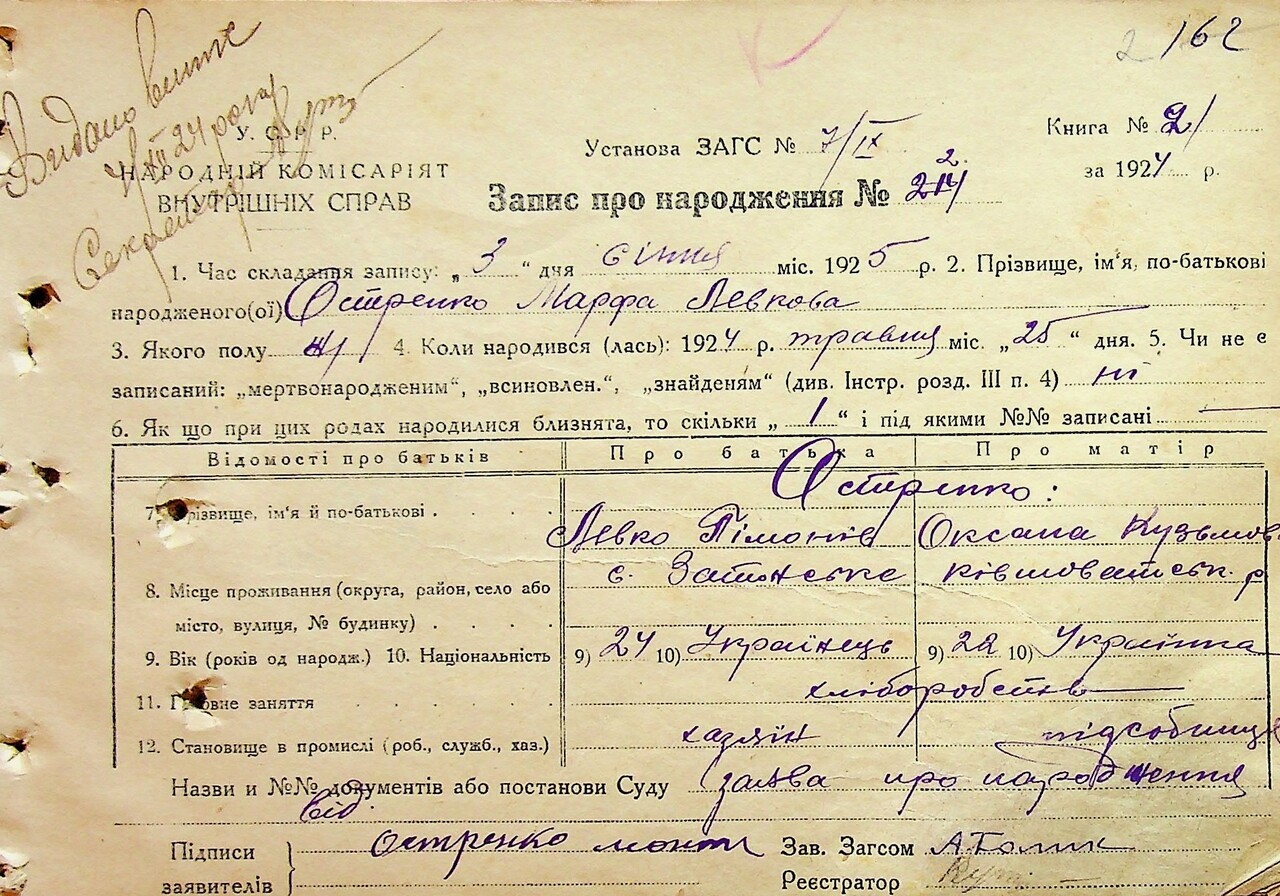 2 162
Видано витяг
7/XII 24 року
Секретар
У. С. Р. Р.
НАРОДНІЙ КОМІСАРІЯТ
ВНУТРІШНІХ СПРАВ
Установа ЗАГС № 7/IX
Книга № 2/
за 1924 р.
Запис про народження № 2
1. Час складання запису: „ 3 “ дня січня міс. 1925 р. 2. Прізвище, ім'я, по-батькові
народженого(ої) Остренко Марфа Левкова
3. Якого полу ж 4. Коли народився (лась): 1924 р. травня міс. „25“ дня. 5. Чи не є
записаний: „мертвонародженим“, „всиновлен.“, „знайденям“ (див. Інстр. розд. III п. 4) ні
6. Як що при цих родах народилися близнята, то скільки „ 1 “ і під якими №№ записані
Відомості про батьків Про батька Про матір
Остренко:
7. Прізвище, ім'я й по-батькові Левко Пімонів Оксана Кузьмов
8. Місце проживання (округа, район, село або с. Затонське
місто, вулиця, № будинку)
9. Вік (років од народж.) 10. Національність 9) 24 10) Українець 9) 22 10) Українка
11. Головне заняття хліборобство
12. Становище в промислі (роб., служб., хаз.) хазяїн підсобниця
Назви и №№ документів або постанови Суду заява про народження
від
Підписи Остренко Зав. Загсом
заявителів Реєстратор